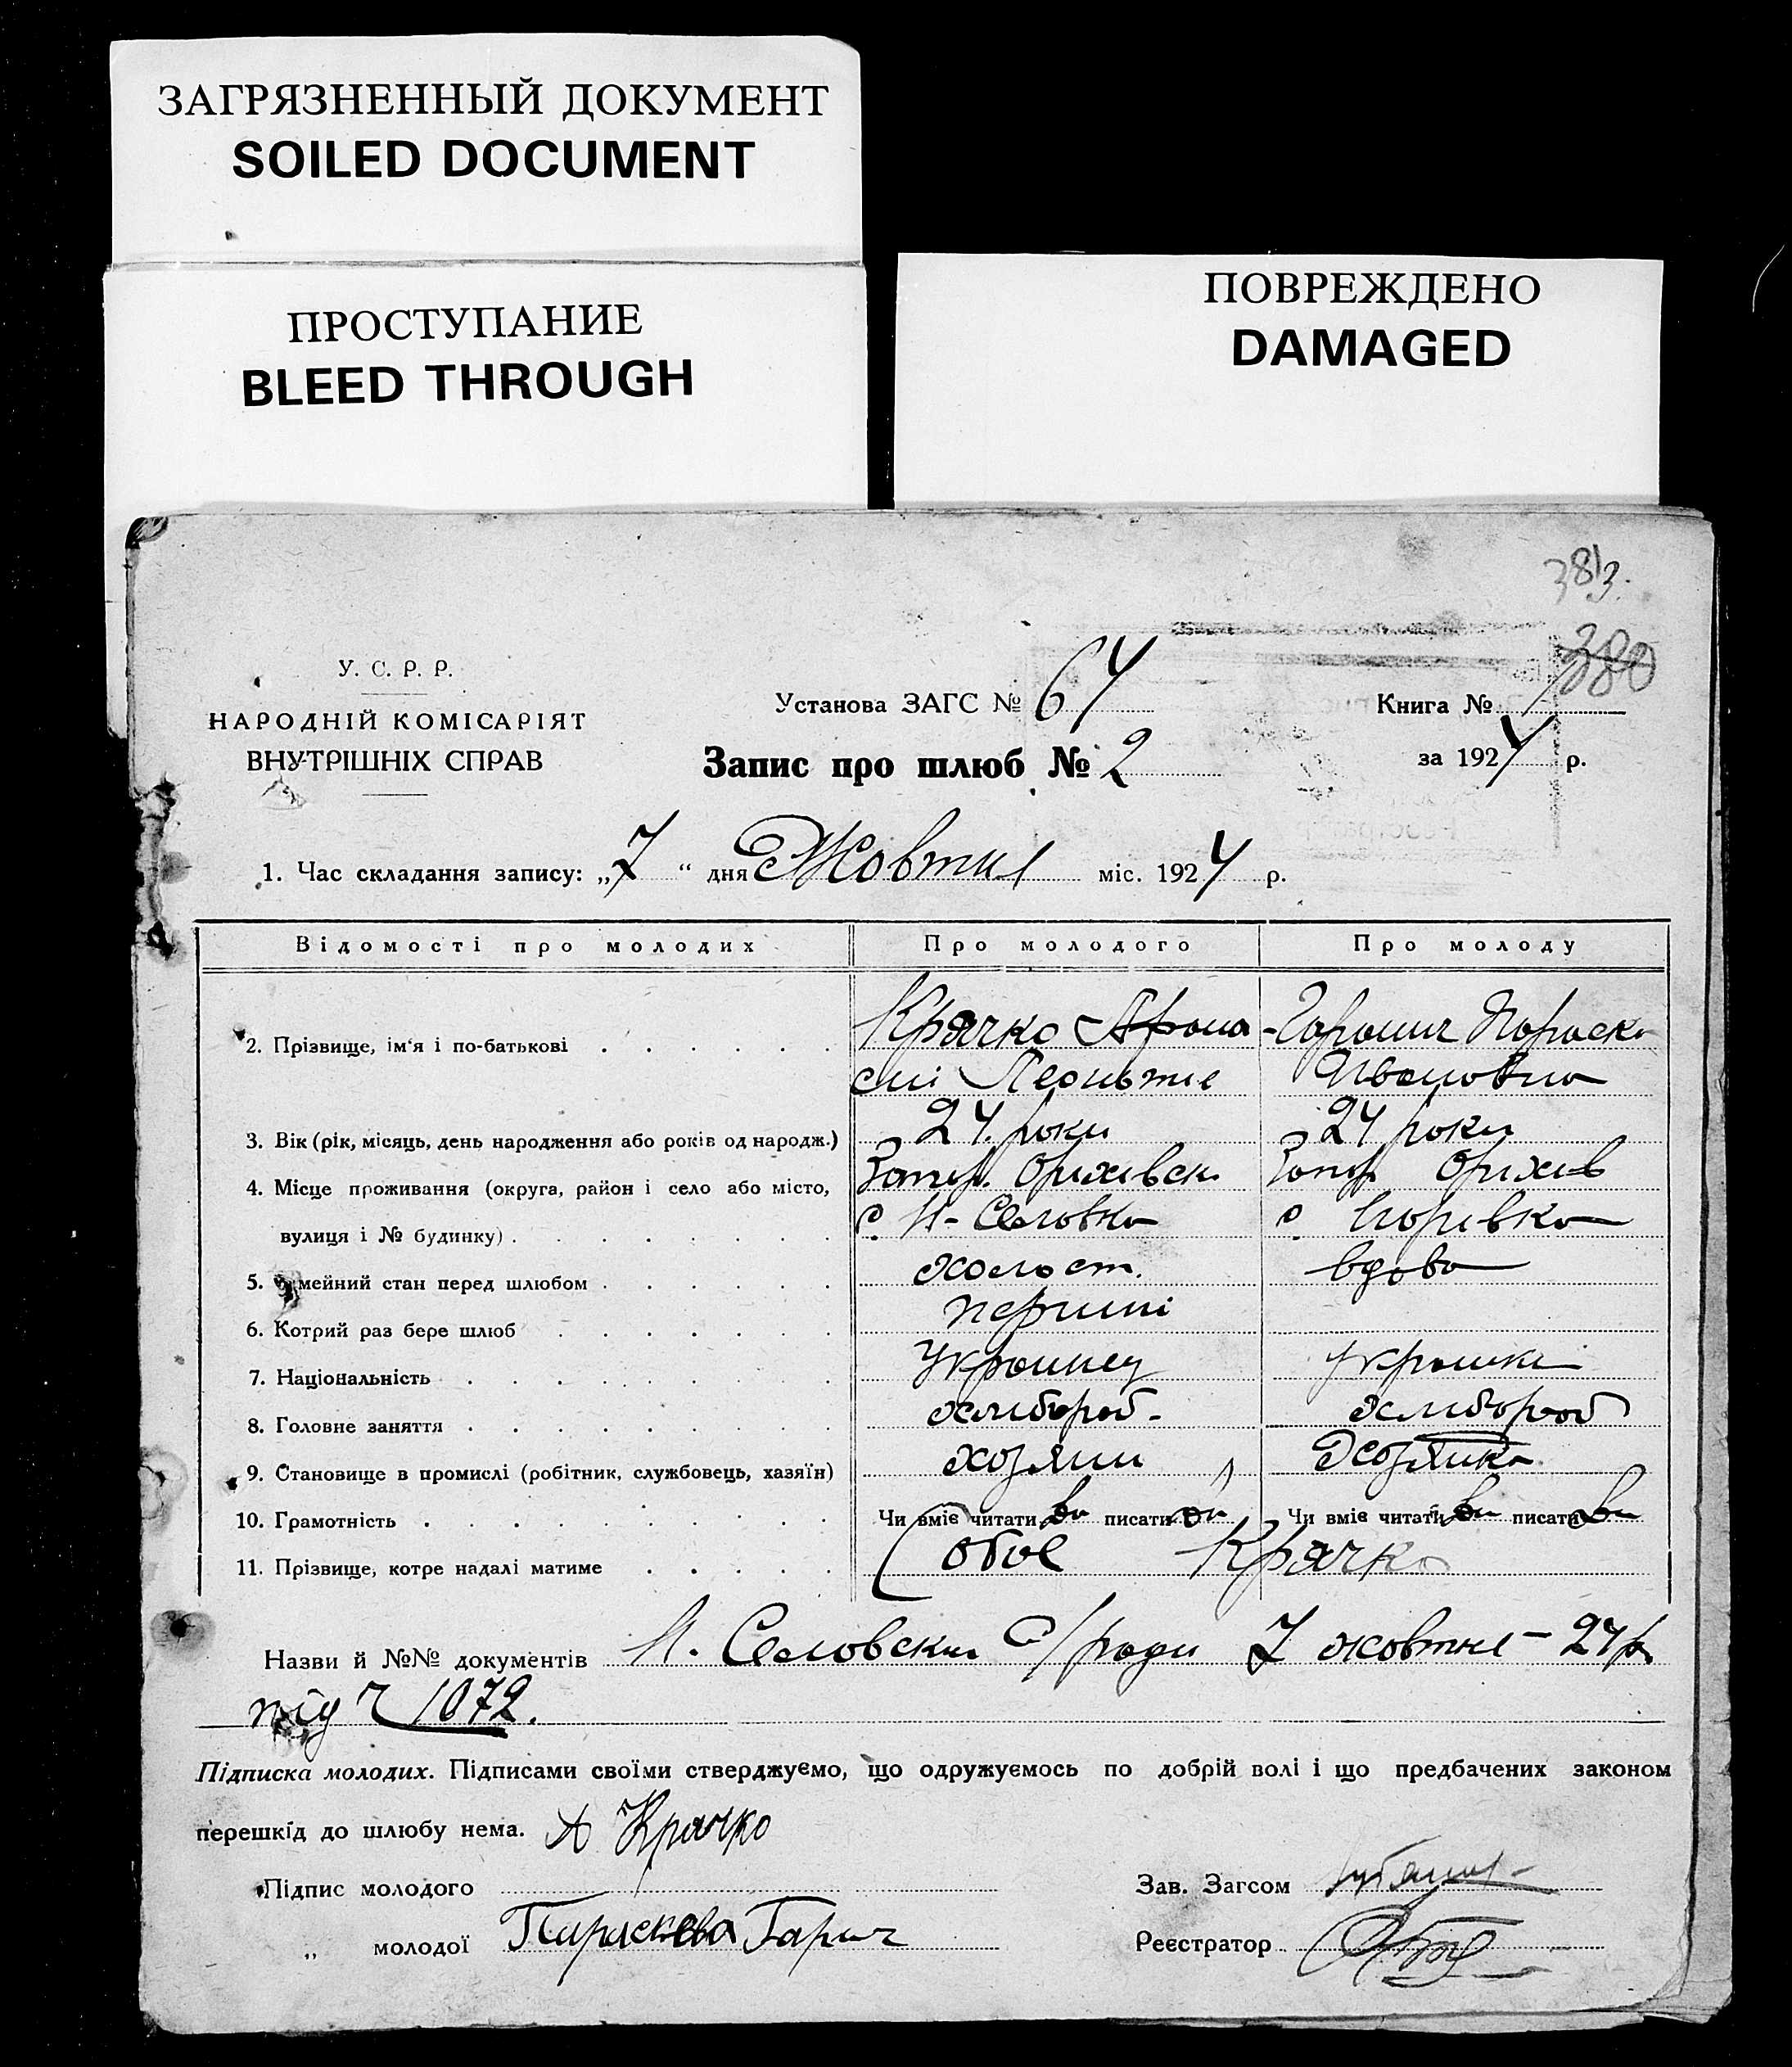 ЗАГРЯЗНЕННЫЙ ДОКУМЕНТ
SOILED DOCUMENT
ПРОСТУПАНИЕ
BLEED THROUGH
ПОВРЕЖДЕНО
DAMAGED
383.
380
У. С. Р. Р.
НАРОДНІЙ КОМІСАРІЯТ
ВНУТРІШНІХ СПРАВ
Установа ЗАГС № 64
Книга №
Запис про шлюб № 2
за 1924 р.
1. Час складання запису: „7“ дня Жовтня міс. 1924 р.
Відомості про молодих Про молодого Про молоду
2. Прізвище, ім'я і по-батькові Крячко Афана- Параска
сій Леонтие Ивановна
3. Вік (рік, місяць, день народження або років од народж.) 24 роки 24 роки
4. Місце проживання (округа, район і село або місто, Запор. Оріхівськ Запор Оріхів
вулиця і № будинку) с. с.
5. Сімейний стан перед шлюбом холост. вдова
6. Котрий раз бере шлюб перший
7. Національність Украинец Украинка
8. Головне заняття хлібороб. хлібороб
9. Становище в промислі (робітник, службовець, хазяїн) хозяин Хозяйка
10. Грамотність Чи вміє читати писати Чи вміє читати писати
11. Прізвище, котре надалі матиме обоє Крячко
Назви й №№ документів С/ради 7 жовтня – 24 р.
під ч 1072.
Підписка молодих. Підписами своїми стверджуємо, що одружуємось по добрій волі і що предбачених законом
перешкід до шлюбу нема. А Крячко
Підпис молодого
Зав. Загсом
„ молодої Параскева Гарич
Реєстратор